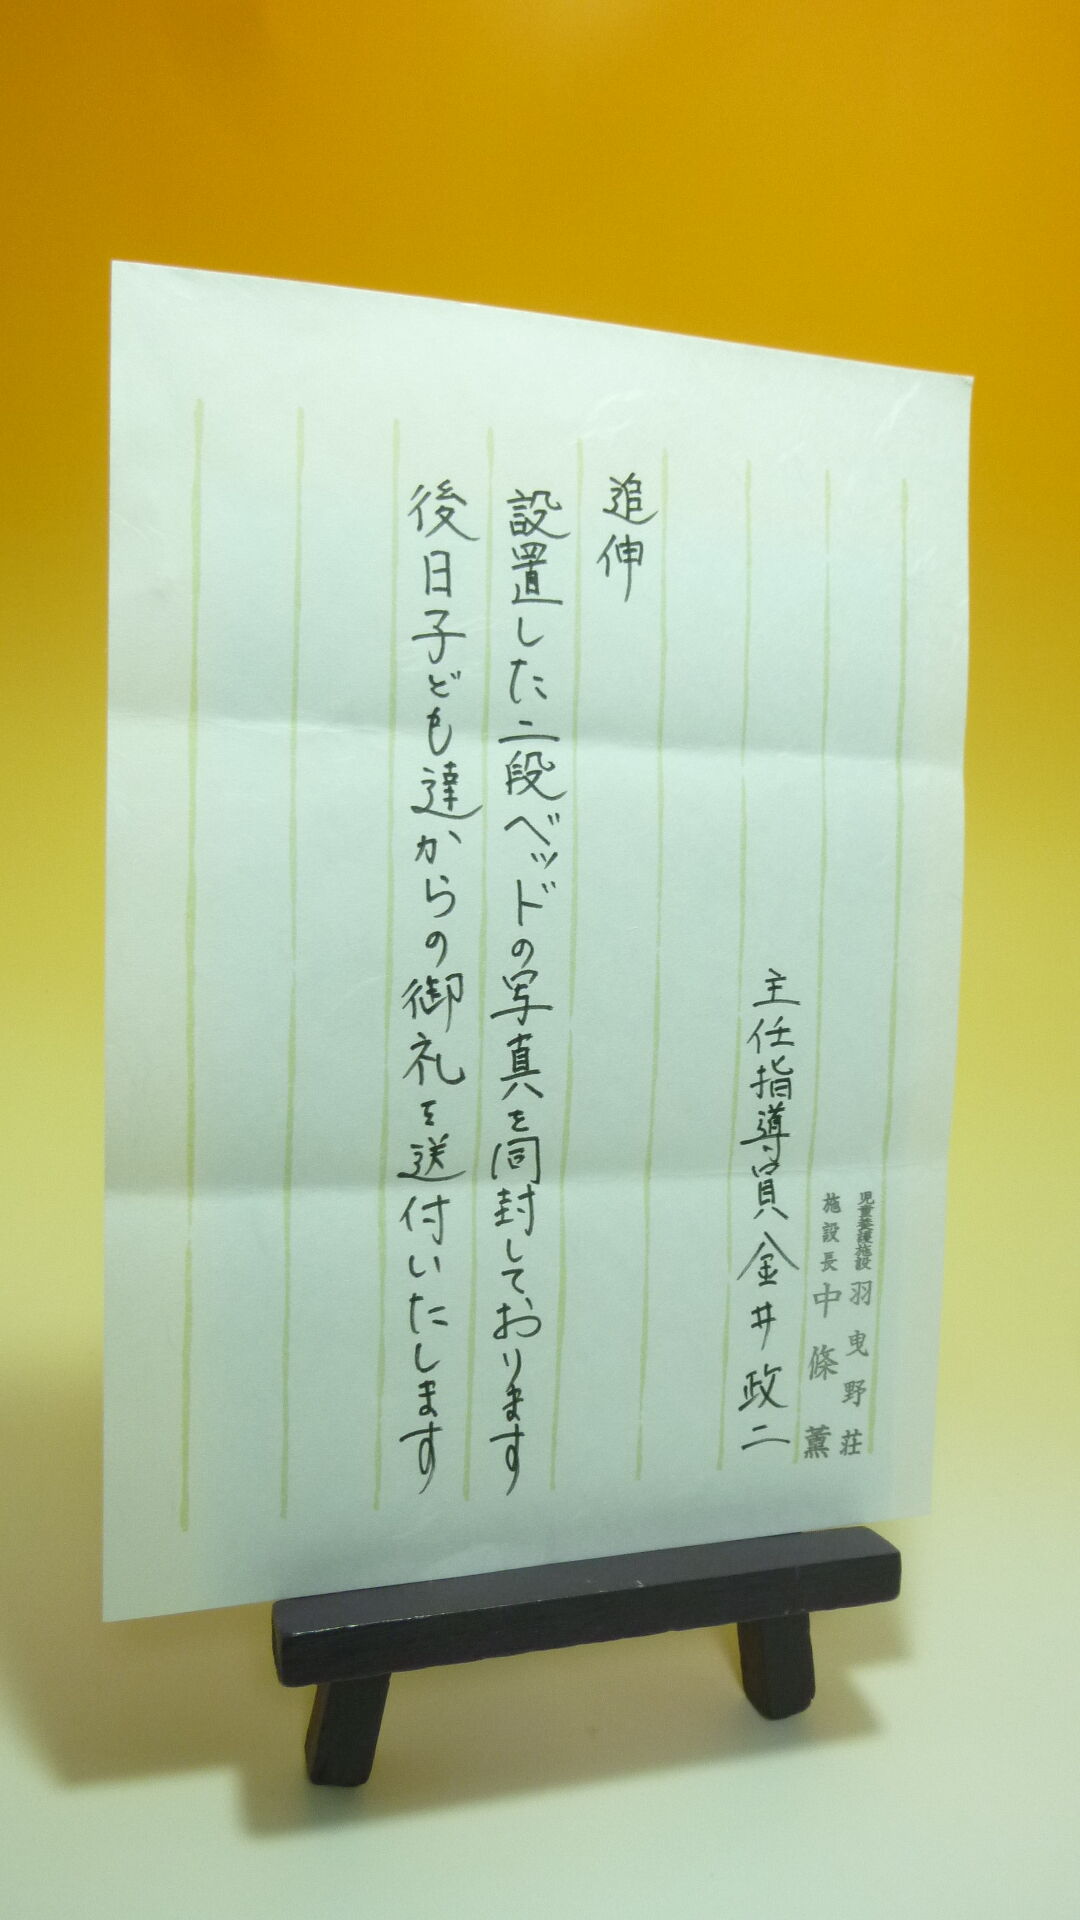 児童養護施設 羽曳野荘
施設長 中條 薫
主任指導員 金井政二
追伸
設置した二段ベッドの写真を同封しております
後日子ども達からの御礼を送付いたします